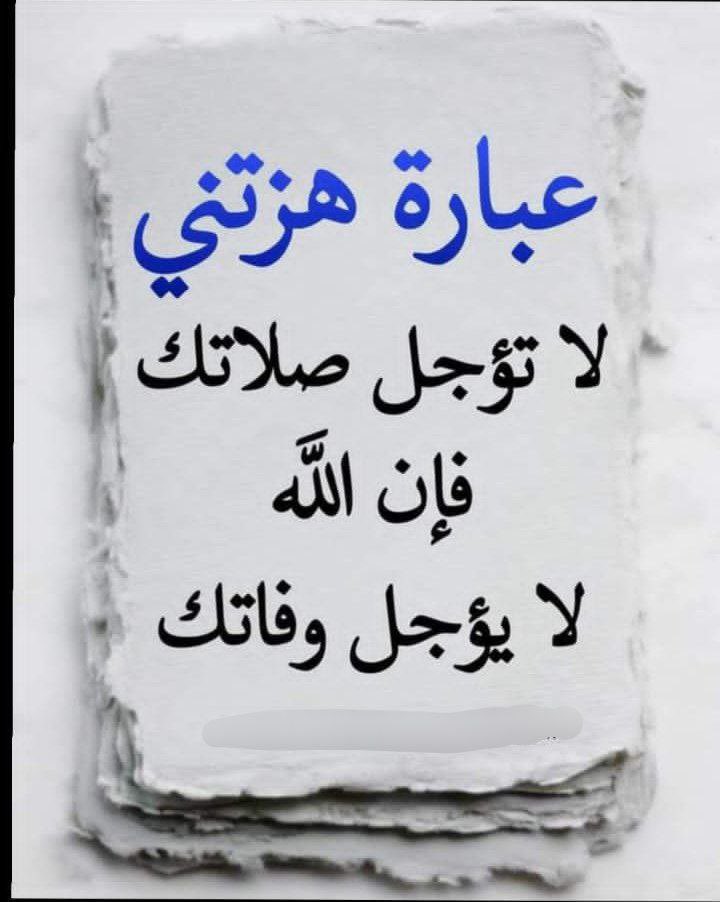 عبارة هزتني
لا تؤجل صلاتك
فإن اللَّه
لا يؤجل وفاتك